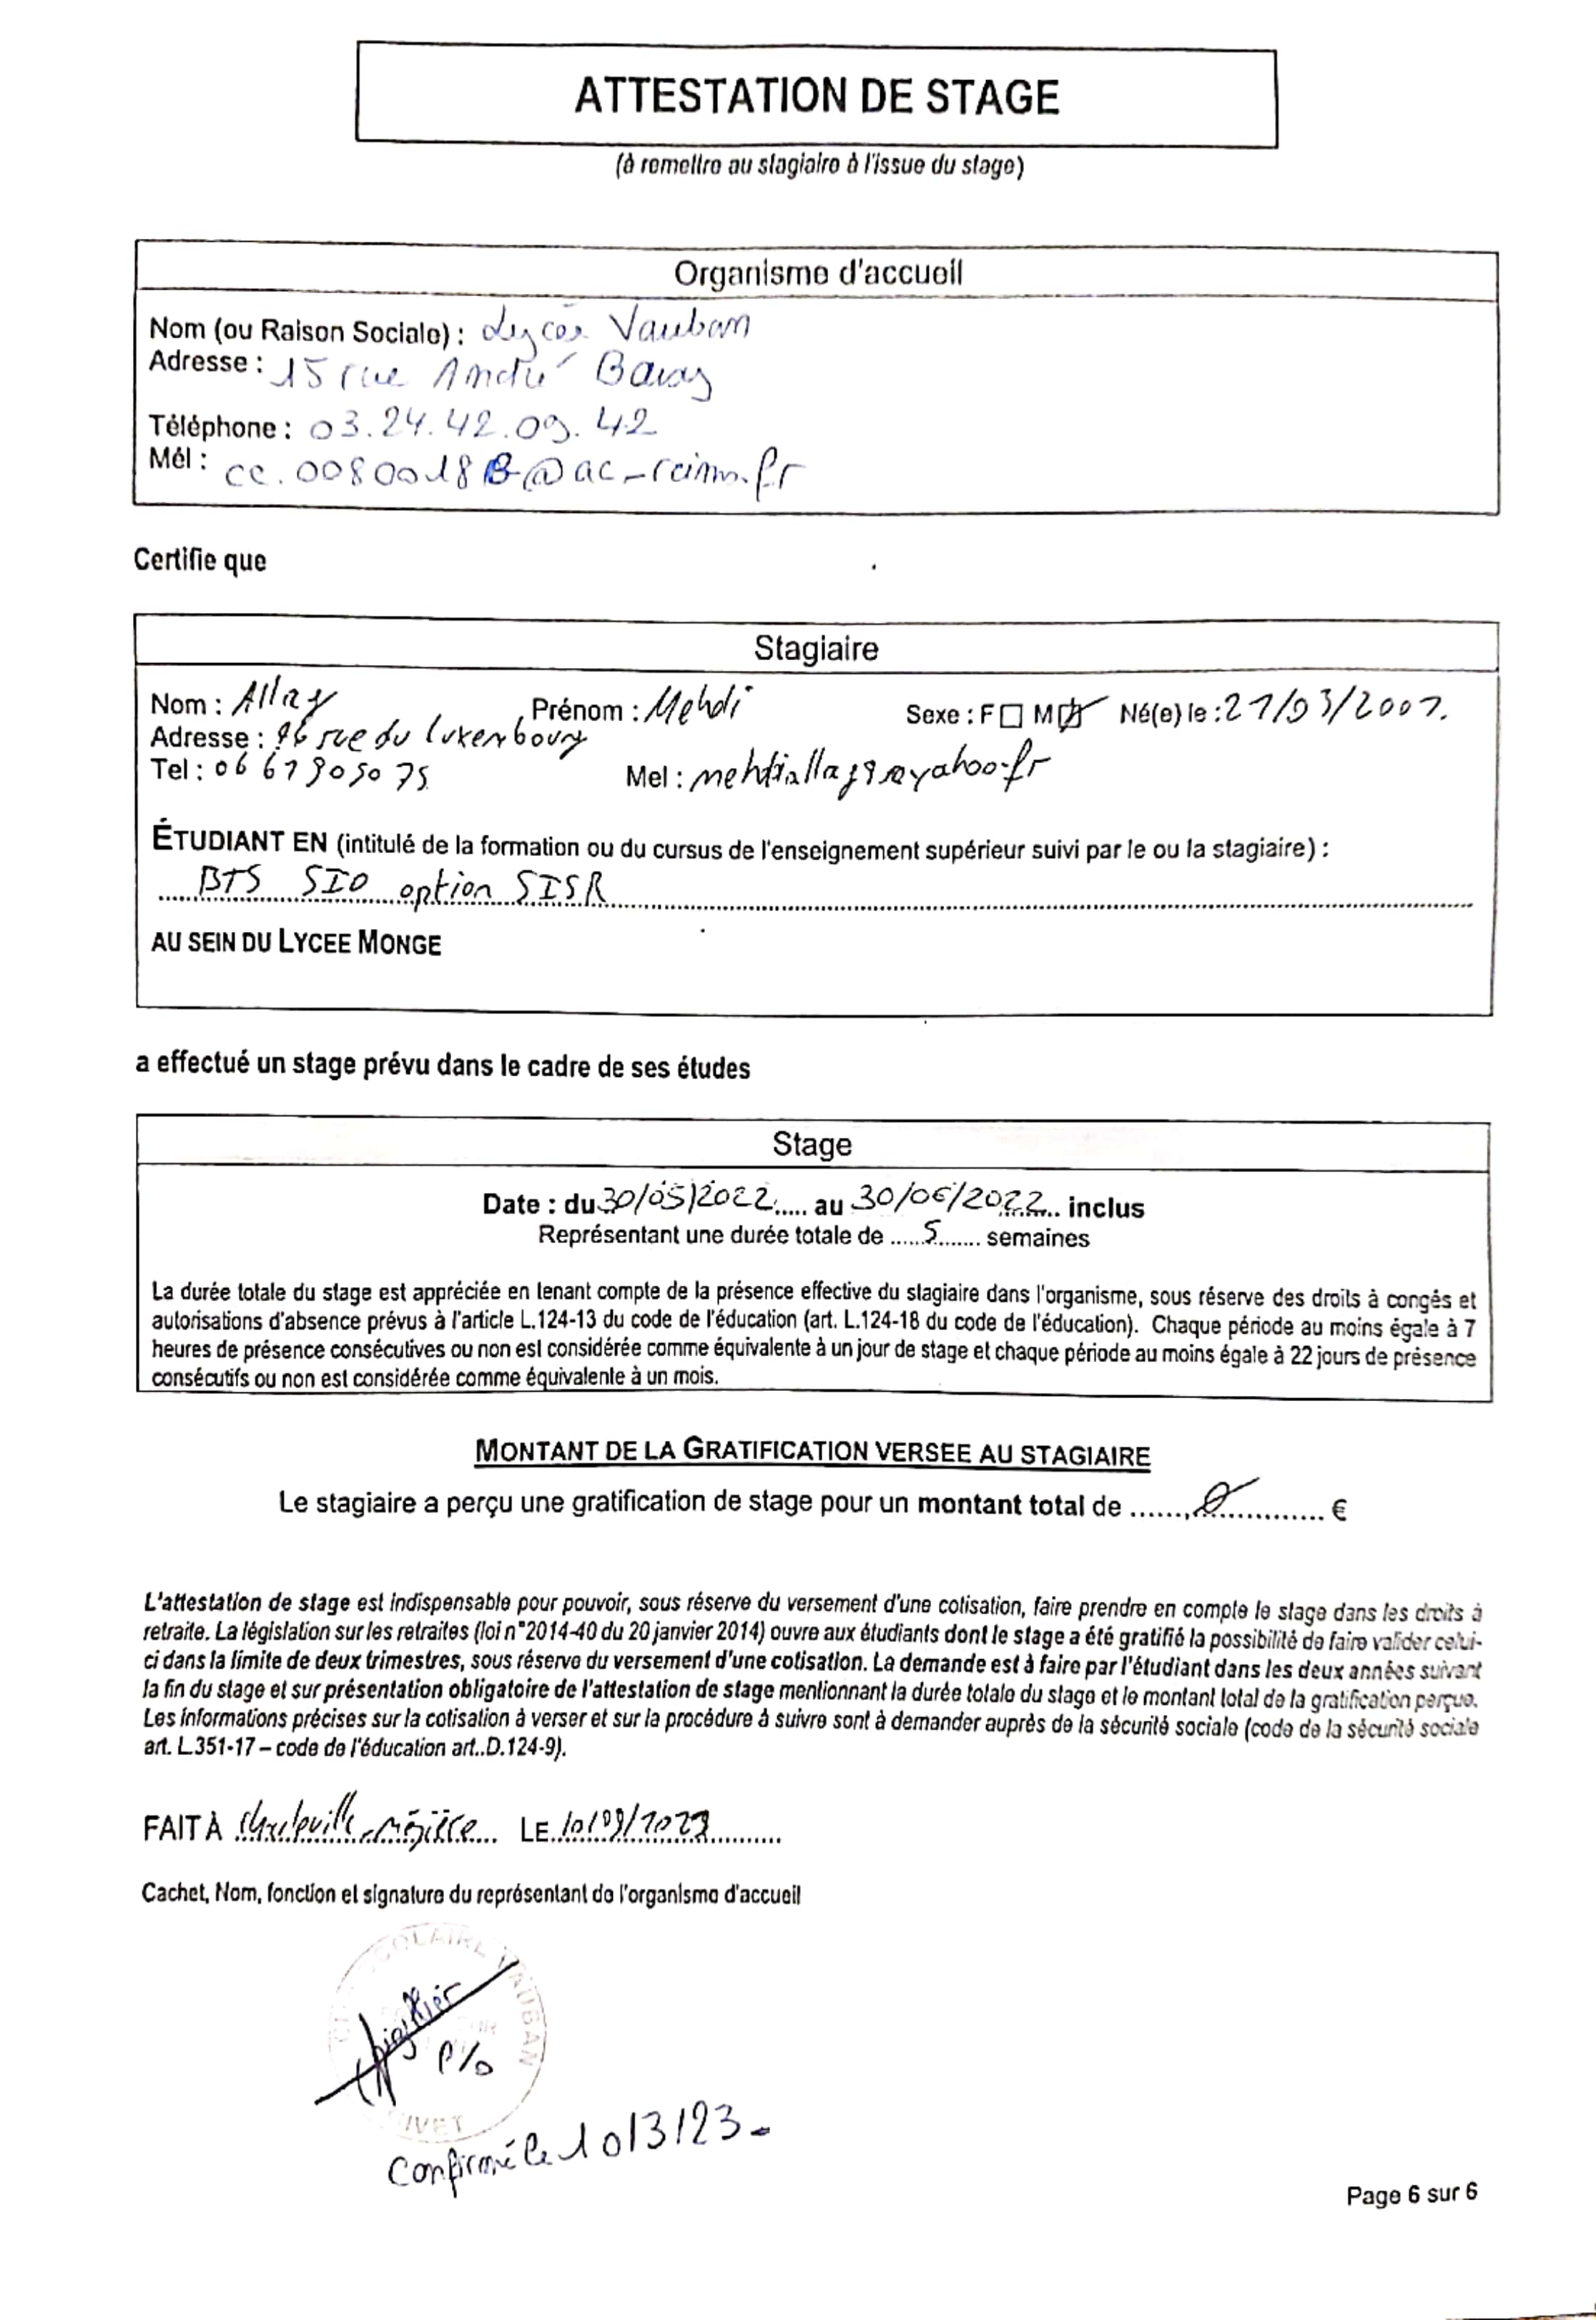 ATTESTATION DE STAGE
(à remettre au stagiaire à l'issue du stage)
Organisme d'accueil
Nom (ou Raison Sociale) : Lycée Vauban
Adresse : 15 rue André
Téléphone : 03.24.42.09.42
Mél : cc.0080018B@ac-reims.fr
Certifie que
Stagiaire
Nom : Allay Prénom : Mehdi Sexe : F ☐ M ☒ Né(e) le : 21/03/2001.
Adresse : rue du Luxembourg
Tel : 06 61 90 50 75 Mel :
ÉTUDIANT EN (intitulé de la formation ou du cursus de l'enseignement supérieur suivi par le ou la stagiaire) :
BTS SIO option SISR
AU SEIN DU LYCEE MONGE
a effectué un stage prévu dans le cadre de ses études
Stage
Date : du 30/05/2022..... au 30/06/2022... inclus
Représentant une durée totale de ......5....... semaines
La durée totale du stage est appréciée en tenant compte de la présence effective du stagiaire dans l'organisme, sous réserve des droits à congés et
autorisations d'absence prévus à l'article L.124-13 du code de l'éducation (art. L.124-18 du code de l'éducation). Chaque période au moins égale à 7
heures de présence consécutives ou non est considérée comme équivalente à un jour de stage et chaque période au moins égale à 22 jours de présence
consécutifs ou non est considérée comme équivalente à un mois.
MONTANT DE LA GRATIFICATION VERSEE AU STAGIAIRE
Le stagiaire a perçu une gratification de stage pour un montant total de ......0............. €
L'attestation de stage est indispensable pour pouvoir, sous réserve du versement d'une cotisation, faire prendre en compte le stage dans les droits à
retraite. La législation sur les retraites (loi n°2014-40 du 20 janvier 2014) ouvre aux étudiants dont le stage a été gratifié la possibilité de faire valider celui-
ci dans la limite de deux trimestres, sous réserve du versement d'une cotisation. La demande est à faire par l'étudiant dans les deux années suivant
la fin du stage et sur présentation obligatoire de l'attestation de stage mentionnant la durée totale du stage et le montant total de la gratification perçue.
Les informations précises sur la cotisation à verser et sur la procédure à suivre sont à demander auprès de la sécurité sociale (code de la sécurité sociale
art. L.351-17 – code de l'éducation art..D.124-9).
FAIT À Charleville-Mézière... LE
Cachet, Nom, fonction et signature du représentant de l'organisme d'accueil
VAUBAN
P/o
Confirmé le 10/3/23-
Page 6 sur 6